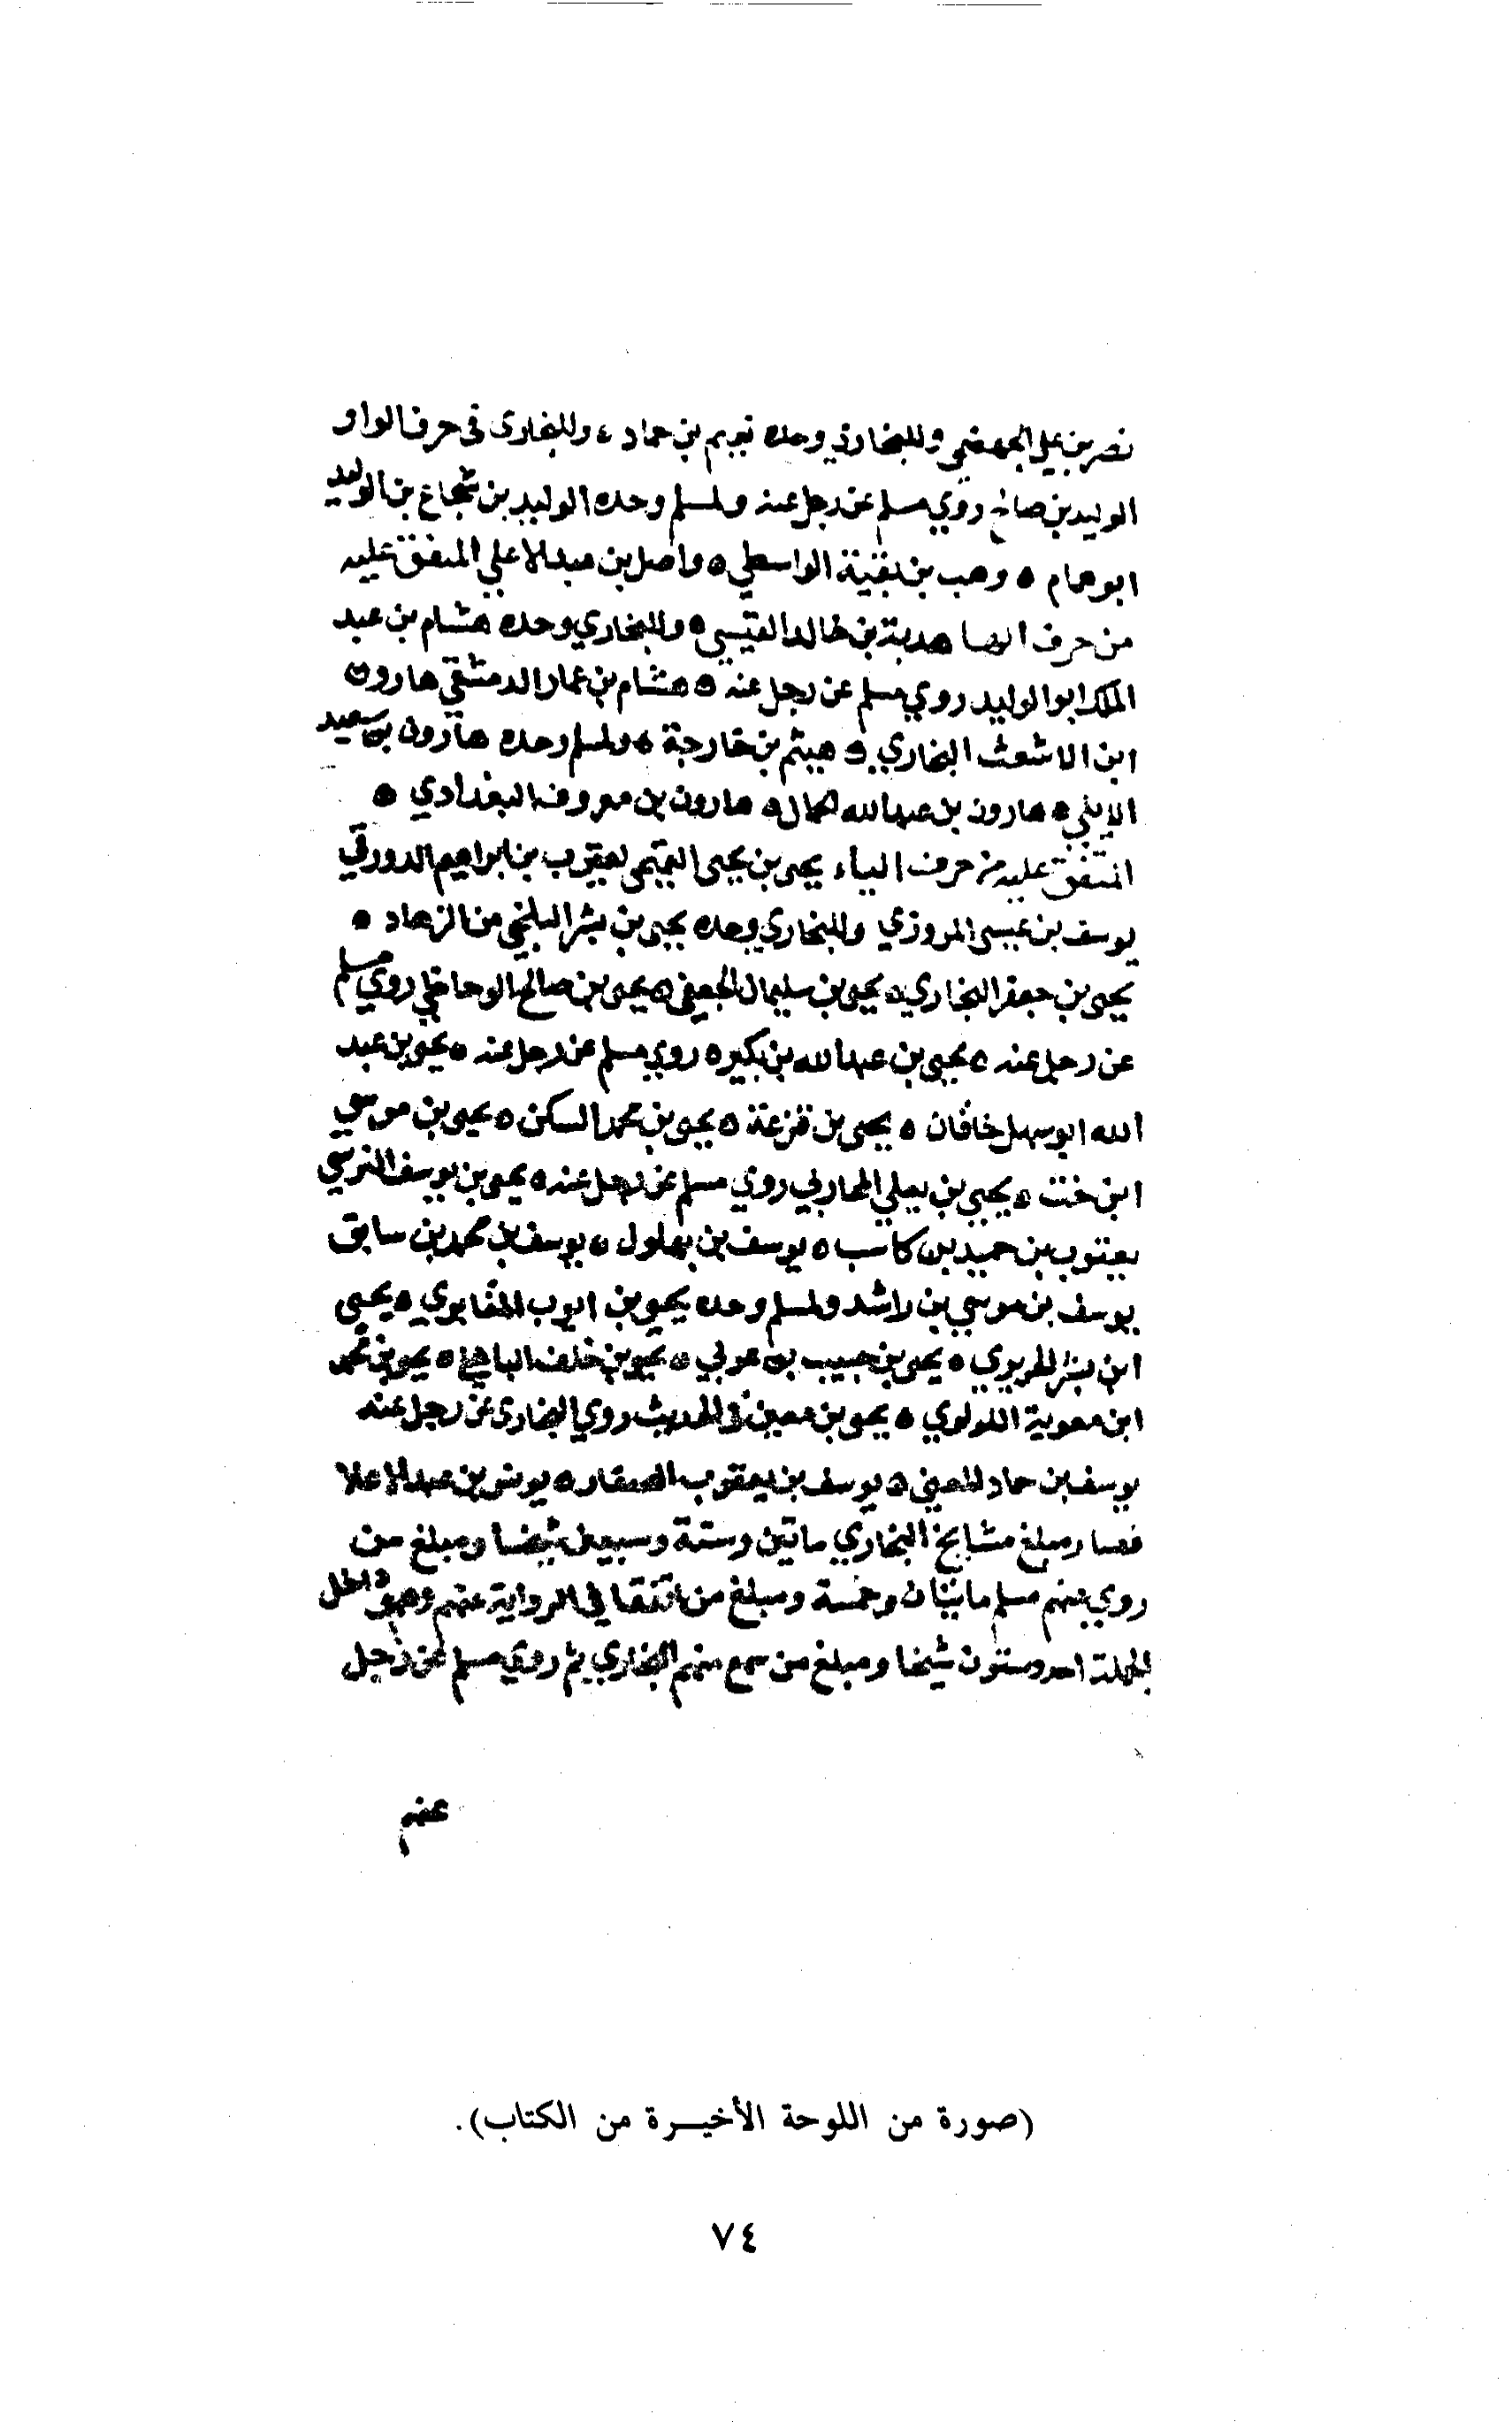 نصر بن علي الجهضمي وللبخاري وحده نعيم بن حماد ، وللبخارى فى حرف الواو
الوليد بن صالح روي مسلم عن رجل عنه ولمسلم وحده الوليد بن شجاع بن الوليد
ابو همام ه وهب بن بقية الواسطي ه واصل بن عبدالاعلي المتفق عليه
من حرف الها هدبة بن خالد القيسي ه وللبخاري وحده هشام بن عبد
الملك ابو الوليد روي مسلم عن رجل عنه ه هشام بن عمار الدمشقي هارون
ابن الاشعث البخاري ه هيثم بن خارجة ه ولمسلم وحده هارون بن سعيد
الايلي ه هارون بن عبدالله الحمال ه هارون بن معروف البغدادي ه
المتفق عليه من حرف الياء يحيى بن يحيى التميمى يعقوب بن ابراهيم الدورقي
يوسف بن عيسى المروزي وللبخاري وحده يحيى بن بشر البلخي من الزهاد ه
يحيى بن جعفر البخاري ه يحيى بن سليمان الجعفي ه يحيى بن صالح الوحاظي روي مسلم
عن رجل عنه ه يحيى بن عبدالله بن بكير ه روي مسلم عن رجل عنه ه يحيى بن عبد
الله ابو سهل خاقان ه يحيى بن قزعة ه يحيى بن محمد السكن ه يحيى بن موسي
ابن خت ه يحيى بن يعلي المحاربي روي مسلم عن رجل عنه ه يحيى بن يوسف
يعقوب بن حميد بن كاسب ه يوسف بن بهلول ه يوسف بن محمد بن سابق
يوسف بن موسي بن راشد ولمسلم وحده يحيى بن ايوب المقابري ه يحيى
ابن بشر الحريري ه يحيى بن حبيب بن عربي ه يحيى بن خلف الباهلي ه يحيى بن محمد
ابن معوية اللولوي ه يحيى بن معين فى الحديث روي البخارى عن رجل عنه
يوسف بن حماد المعني ه يوسف بن يعقوب الصفار ه يونس بن عبدالاعلا
فصار مبلغ مشايخ البخاري ماتين وستة وسبعين شيخا ومبلغ من
روي عنهم مسلم مايتان وخمسة ومبلغ من اتفقا في الرواية عنهم وهم فى داخل
الجملة احد وستون شيخا ومبلغ من سمع منهم البخاري ثم روي مسلم عن رجل
عنهم
(صورة من اللوحة الأخيـــرة من الكتاب).
٧٤